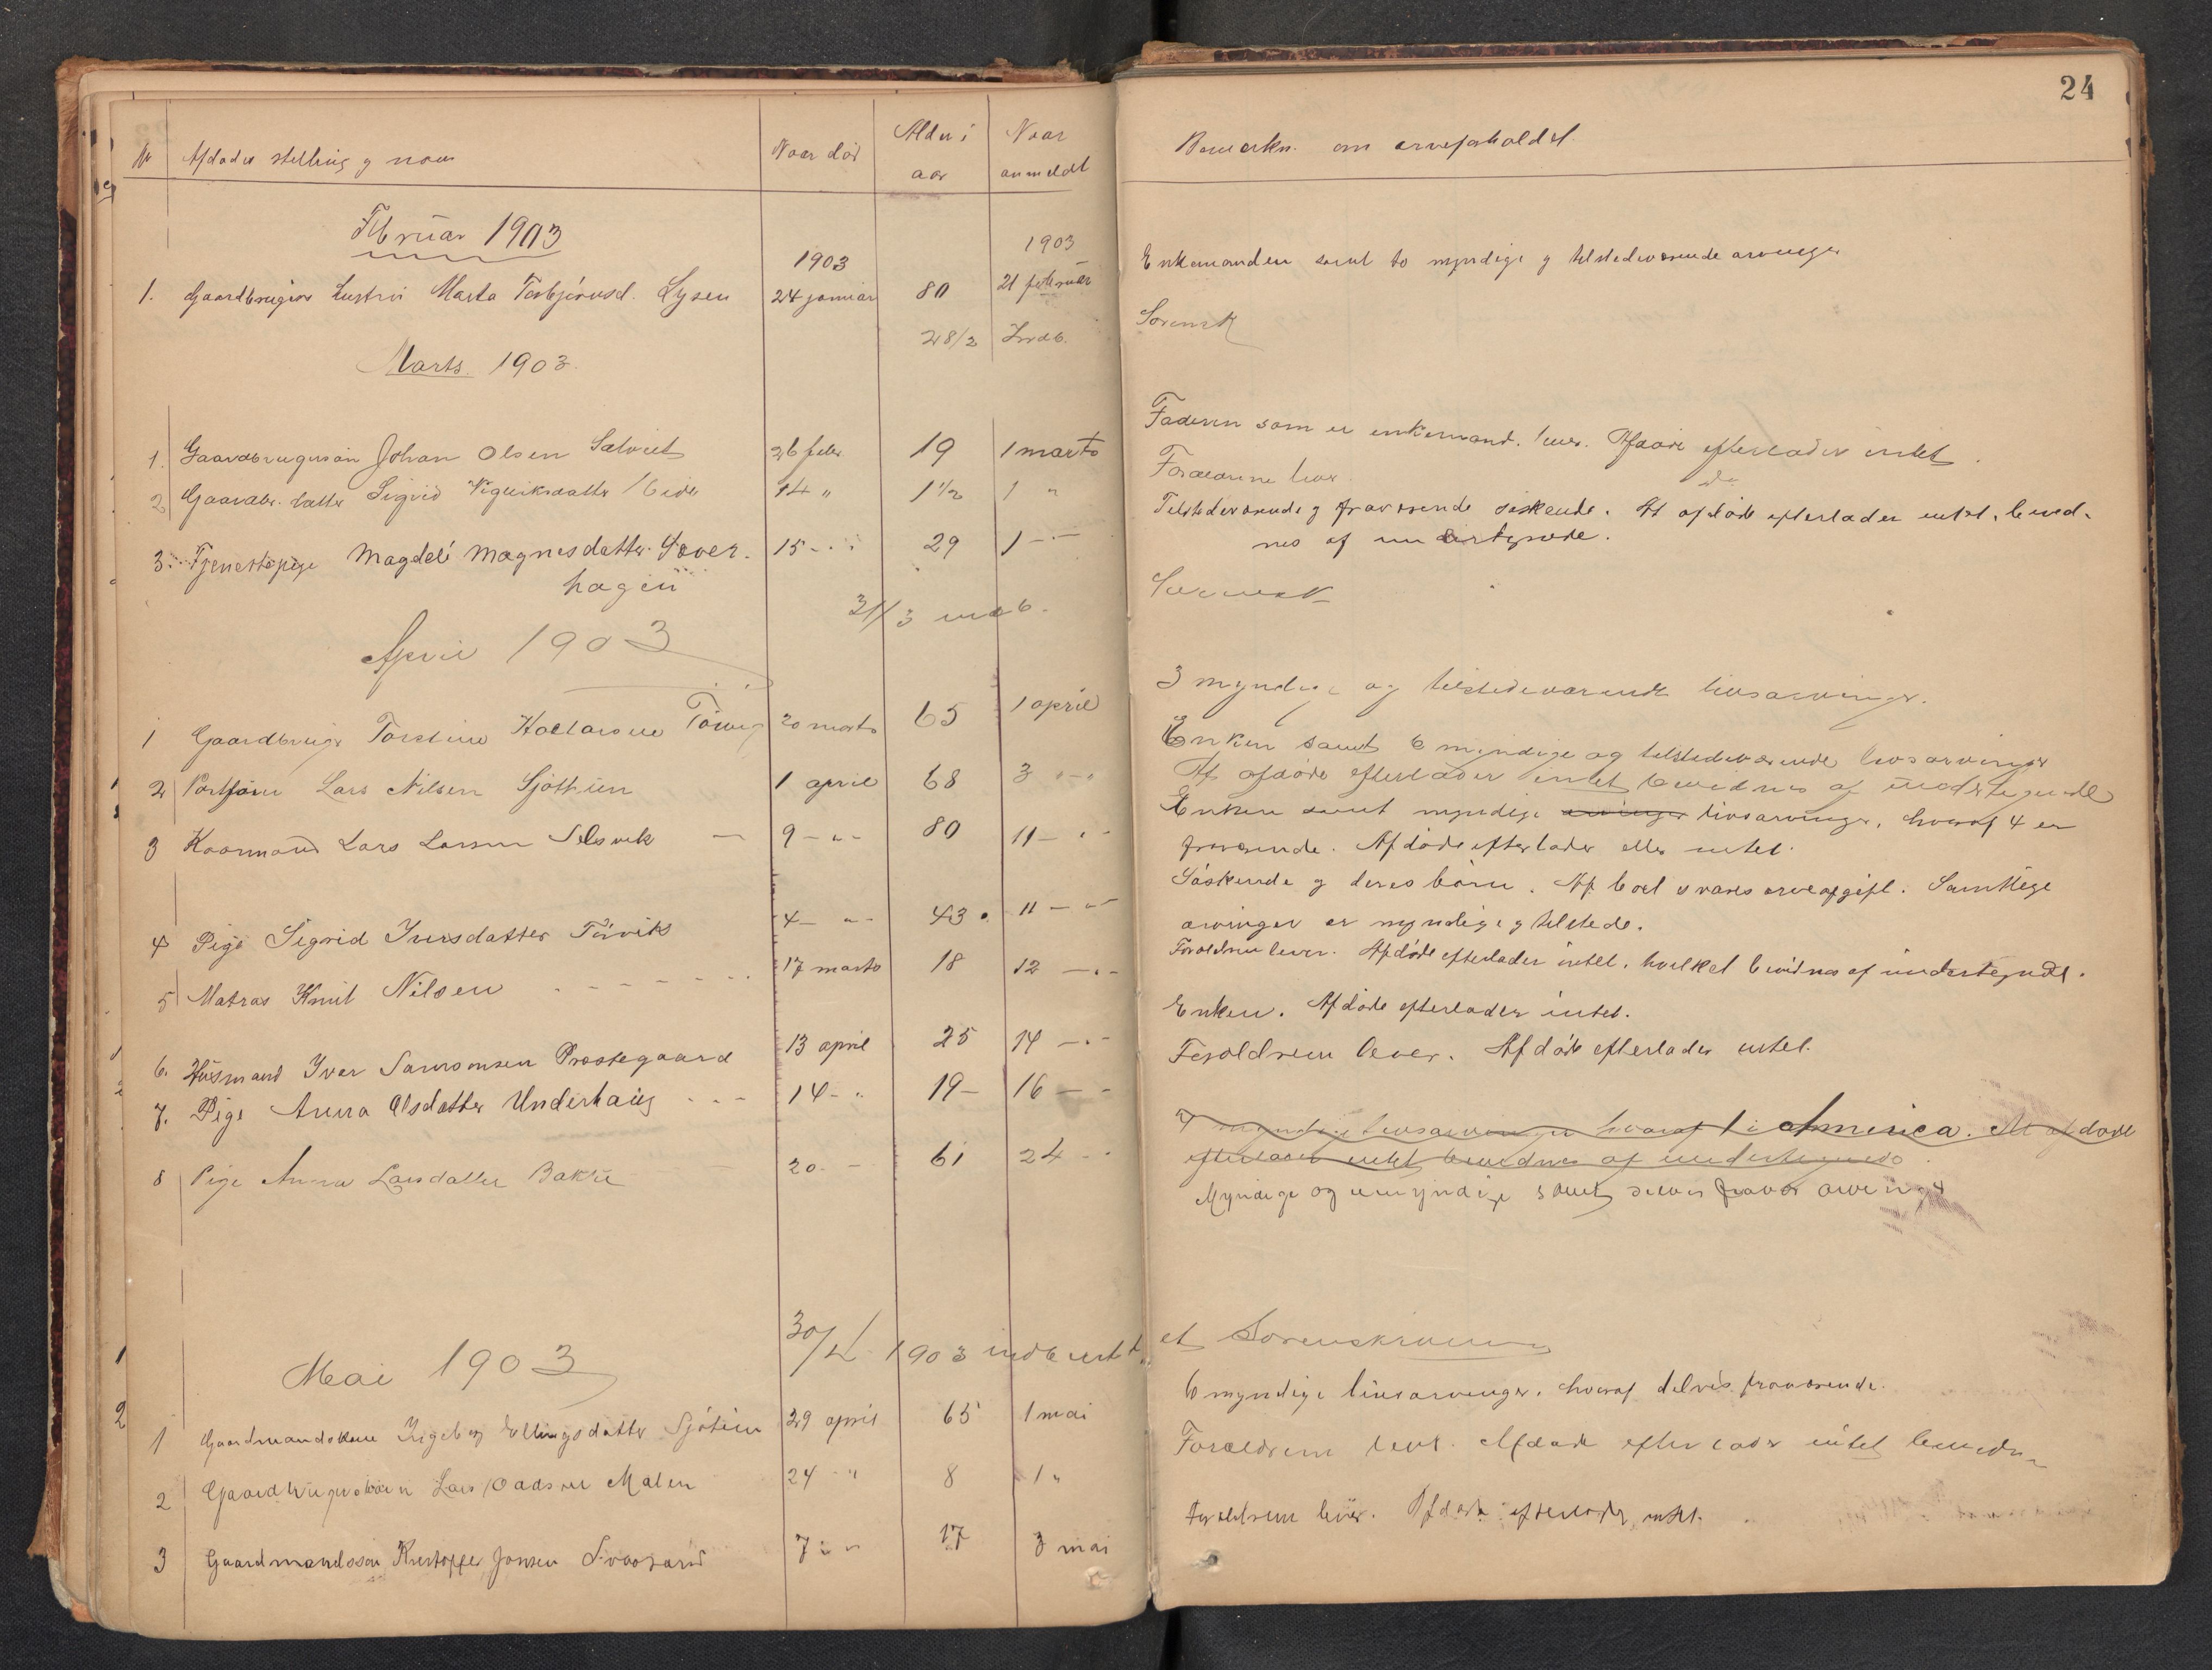 24
No Afdødes stilling og navn Naar død Alder i aar Naar anmeldt
Bemerkn. om arveforholdet.
Februar 1903
1903 1903
1. Gaardbrugers hustru Marta Torbjørnsd. Lysen 24 januar 80 21 februar
Enkemanden samt to myndige og tilstedeværende arvinger
28/2 Indb.
Sorensk
Marts 1903
1. Gaardbrugersøn Johan Olsen 26 febr 19 1 marts
Faderen som er enkemand, lever. Afdøde efterlader intet.
2 Gaardbr. datter Sigrid 14 " 1 1/2 1 "
Forældrene lever do
3. Tjenestepige Magdeli Magnesdatter 15 - " 29 1 - " -
hagen
Tilstedeværende og fraværende søskende. At afdøde efterlader intet, bevid-
nes af undertegnede.
31/3 indb.
Sorensk
April 1903
1 Gaardbruger Torstein 20 marts 65 1 april
3 myndige og tilstedeværende livsarvinger.
2 Lars Nilsen 1 april 68 3 - " -
Enken samt 6 myndige og tilstedeværende livsarvinger
At afdøde efterlader intet bevidnes af undertegnede
3 Kaarmand Lars Larsen Selsvik - 9 - " - 80 11 - " -
Enken samt myndige arvinger livsarvinger, hvoraf 4 er
fraværende. Afdøde efterlader eller intet.
4 Pige Sigrid Iversdatter Törvik 4 - " - 43. 11 - " -
Søskende og deres børn. Af boet svares arveafgift. Samtlige
arvinger er myndige og tilstede.
5 Matros Knut Nilsen 17 marts 18 12 - " -
Forældrene lever. Afdøde efterlader intet, hvilket bevidnes af undertegnede.
6. Husmand Iver Samsonsen Prestegaard 13 april 25 14 - " -
Enken. Afdøde efterlader intet.
7. Pige Anna Olsdatter Underhaug 14 - " 19 - 16 - -
Forældrene lever. Afdøde efterlader intet.
8 Pige Anna Larsdatter Bakke 20 - - 61 24 - "
7 myndige livsarvinger hvoraf 1 i America. At afdøde
efterlader intet bevidnes af undertegnede
Myndige og umyndige samt
30/4 1903 indberettet Sorenskriveren
Mai 1903
1 Gaardmandskone Ingeborg Ellingsdatter 29 april 65 1 mai
6 myndige livsarvinger, hvoraf delvis fraværende.
2 Gaardbrugersbarn Lars Malen 24 - " 8 1 "
Forældrene lever. Afdøde efterlader intet bevidn
3 Gaardmandssøn Kristoffer Jonsen 7 - " 17 3 mai
Forældrene lever. Afdøde efterlader intet.